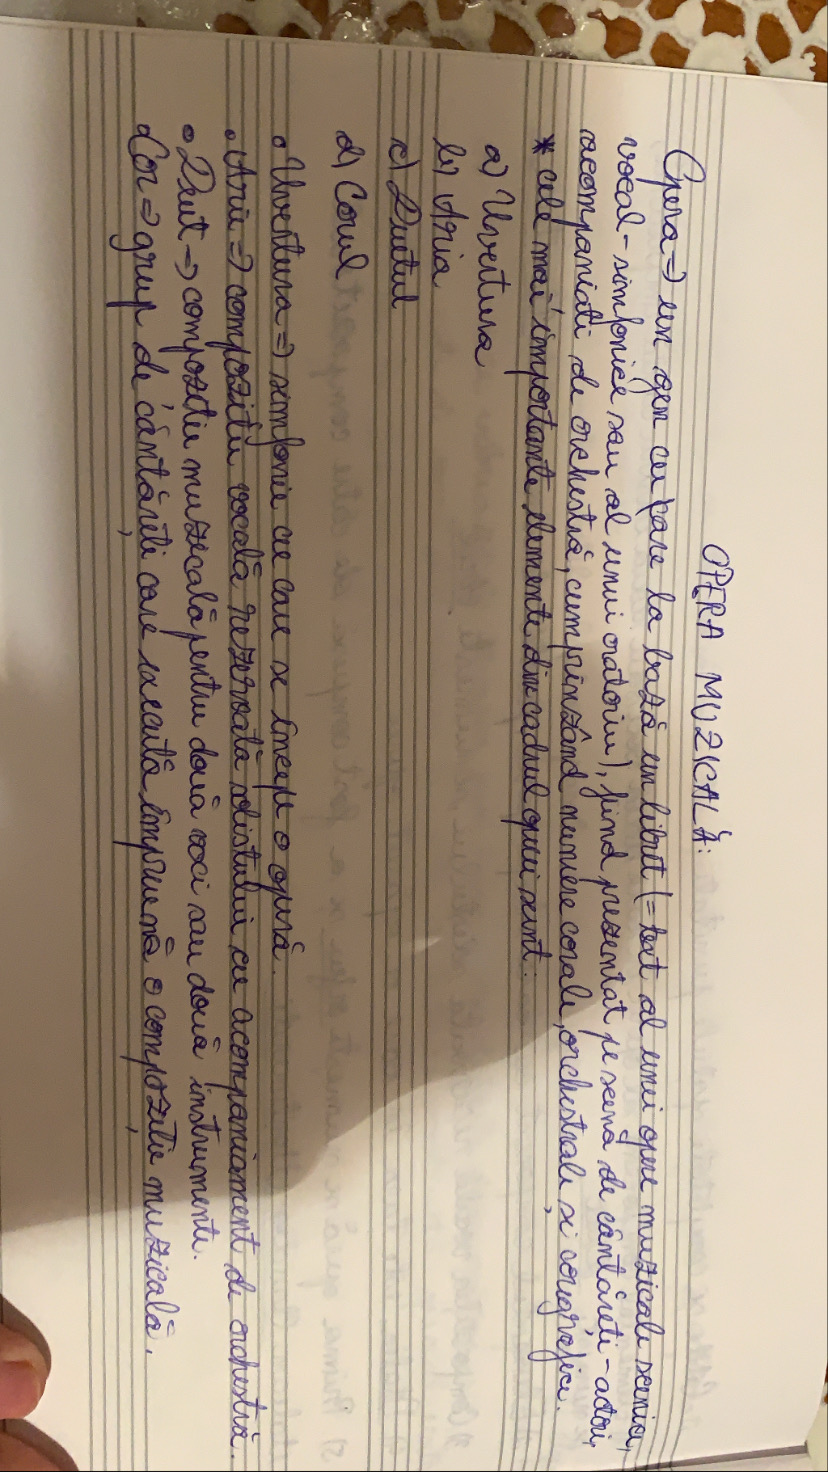 OPERA MUZICALĂ:
Opera => un gen cu pare la bază un libret (= text al unui opere muzicale scenică,
vocal-simfonice sau al unui oratoriu), fiind prezentat pe scenă de cântăreți-actori,
acompaniați de orchestră, cumprinzând numere corale, orchestrale și coregrafice.
* cele mai importante elemente din cadrul operei sunt:
a) Uvertura
b) Aria
c) Duetul
d) Corul
• Uvertura => simfonie cu care se începe o operă.
• Arie => compoziție vocală rezervată solistului cu acompaniament de orchestră.
• Duet -> compoziție muzicală pentru două voci sau două instrumente.
Cor => grup de cântăreți care execută împreună o compoziție muzicală.